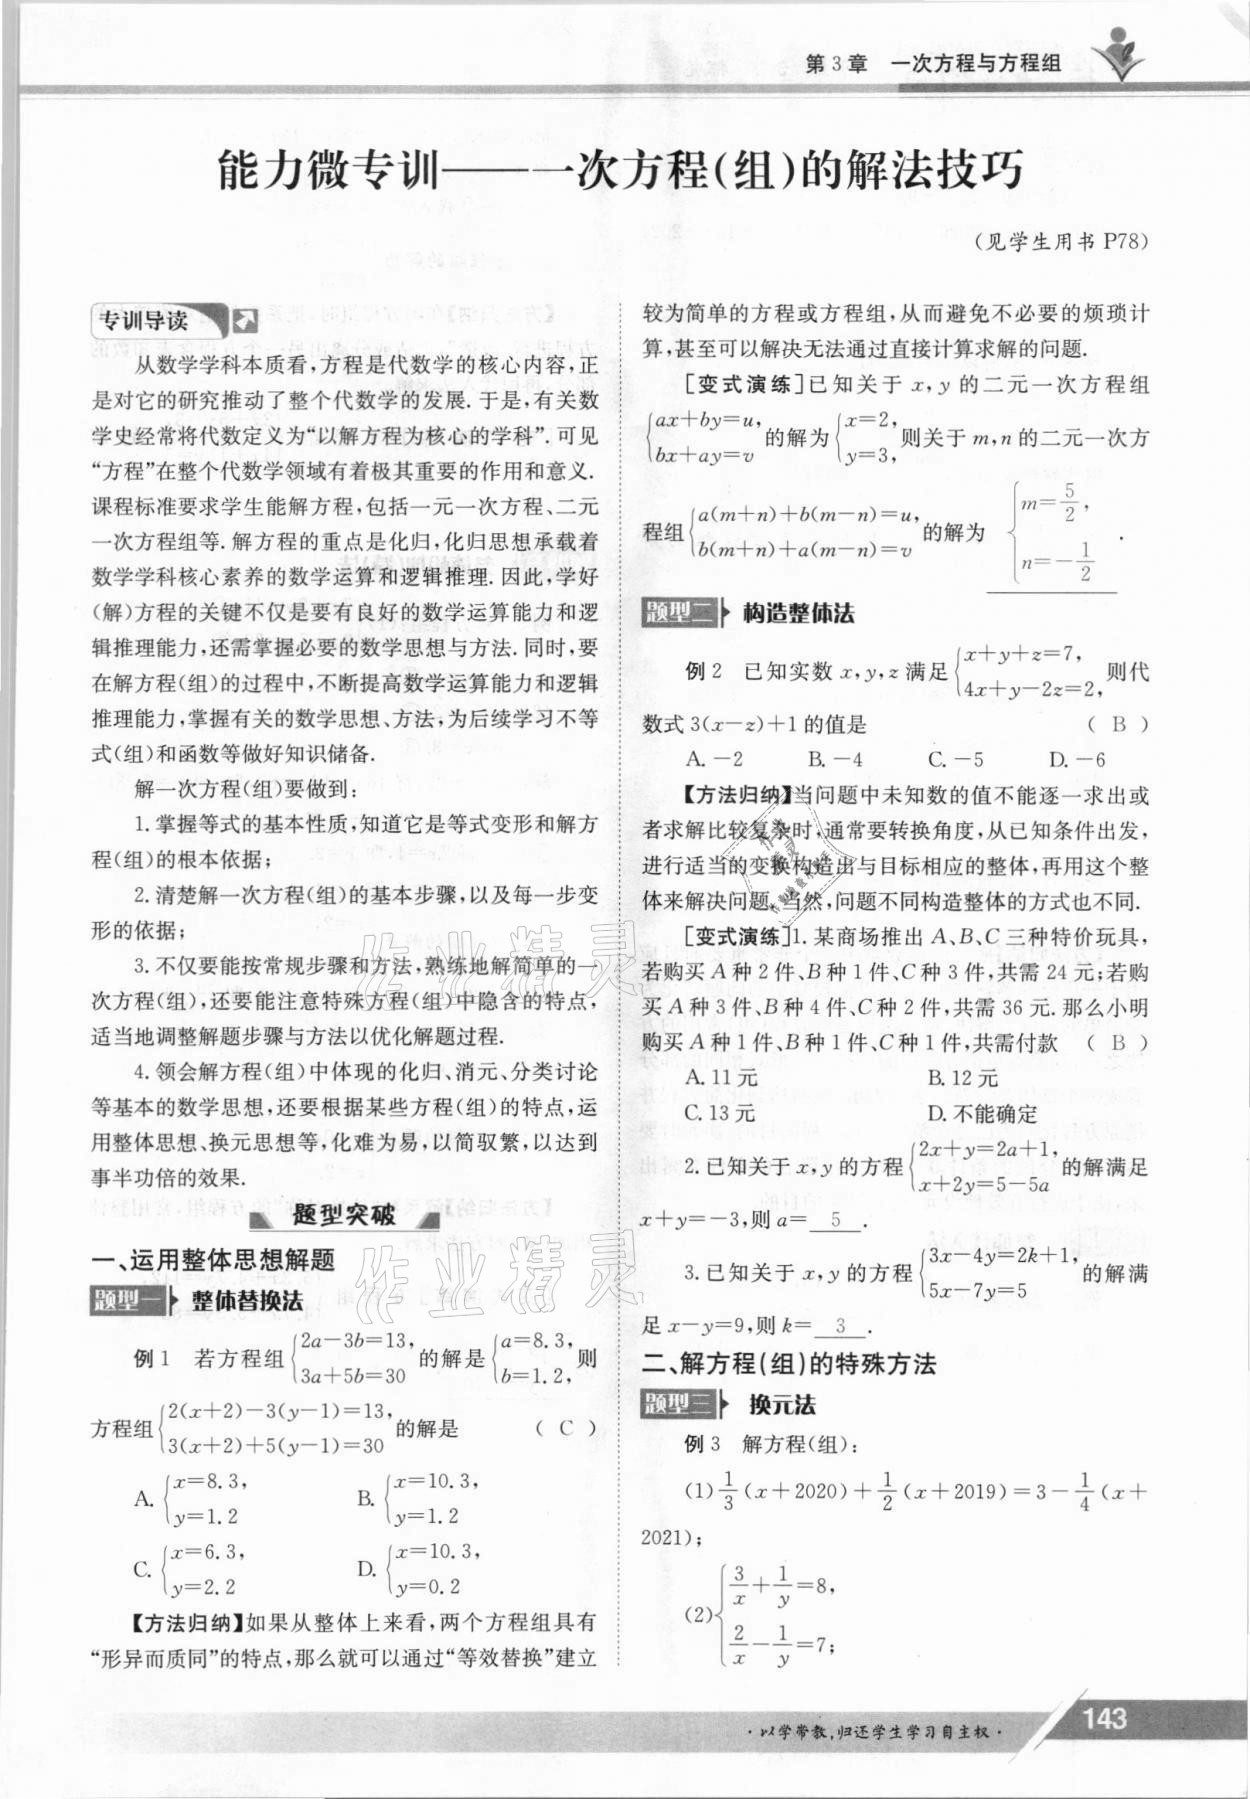 第3章 一次方程与方程组
能力微专训——一次方程(组)的解法技巧
(见学生用书 P78)
专训导读
从数学学科本质看,方程是代数学的核心内容,正
是对它的研究推动了整个代数学的发展.于是,有关数
学史经常将代数定义为“以解方程为核心的学科”.可见
“方程”在整个代数学领域有着极其重要的作用和意义.
课程标准要求学生能解方程,包括一元一次方程、二元
一次方程组等.解方程的重点是化归,化归思想承载着
数学学科核心素养的数学运算和逻辑推理.因此,学好
(解)方程的关键不仅是要有良好的数学运算能力和逻
辑推理能力,还需掌握必要的数学思想与方法.同时,要
在解方程(组)的过程中,不断提高数学运算能力和逻辑
推理能力,掌握有关的数学思想、方法,为后续学习不等
式(组)和函数等做好知识储备.
解一次方程(组)要做到:
1.掌握等式的基本性质,知道它是等式变形和解方
程(组)的根本依据;
2.清楚解一次方程(组)的基本步骤,以及每一步变
形的依据;
3.不仅要能按常规步骤和方法,熟练地解简单的一
次方程(组),还要能注意特殊方程(组)中隐含的特点,
适当地调整解题步骤与方法以优化解题过程.
4.领会解方程(组)中体现的化归、消元、分类讨论
等基本的数学思想,还要根据某些方程(组)的特点,运
用整体思想、换元思想等,化难为易,以简驭繁,以达到
事半功倍的效果.
题型突破
一、运用整体思想解题
题型一 整体替换法
例1 若方程组{2a-3b=13, 3a+5b=30 的解是{a=8.3, b=1.2,则
方程组{2(x+2)-3(y-1)=13, 3(x+2)+5(y-1)=30 的解是 ( C )
A.{x=8.3, y=1.2 B.{x=10.3, y=1.2
C.{x=6.3, y=2.2 D.{x=10.3, y=0.2
【方法归纳】如果从整体上来看,两个方程组具有
“形异而质同”的特点,那么就可以通过“等效替换”建立
较为简单的方程或方程组,从而避免不必要的烦琐计
算,甚至可以解决无法通过直接计算求解的问题.
[变式演练]已知关于 x,y 的二元一次方程组
{ax+by=u, bx+ay=v 的解为{x=2, y=3,则关于 m,n 的二元一次方
程组{a(m+n)+b(m-n)=u, b(m+n)+a(m-n)=v 的解为 {m=5/2, n=-1/2.
题型二 构造整体法
例2 已知实数 x,y,z 满足{x+y+z=7, 4x+y-2z=2,则代
数式 3(x-z)+1 的值是 ( B )
A.-2 B.-4 C.-5 D.-6
【方法归纳】当问题中未知数的值不能逐一求出或
者求解比较复杂时,通常要转换角度,从已知条件出发,
进行适当的变换构造出与目标相应的整体,再用这个整
体来解决问题.当然,问题不同构造整体的方式也不同.
[变式演练]1.某商场推出 A、B、C 三种特价玩具,
若购买 A 种 2 件、B 种 1 件、C 种 3 件,共需 24 元;若购
买 A 种 3 件、B 种 4 件、C 种 2 件,共需 36 元.那么小明
购买 A 种 1 件、B 种 1 件、C 种 1 件,共需付款 ( B )
A.11 元 B.12 元
C.13 元 D.不能确定
2.已知关于 x,y 的方程{2x+y=2a+1, x+2y=5-5a 的解满足
x+y=-3,则 a= 5 .
3.已知关于 x,y 的方程{3x-4y=2k+1, 5x-7y=5 的解满
足 x-y=9,则 k= 3 .
二、解方程(组)的特殊方法
题型三 换元法
例3 解方程(组):
(1)1/3(x+2020)+1/2(x+2019)=3-1/4(x+
2021);
(2){3/x+1/y=8, 2/x-1/y=7;
作业精灵
作业精灵
·以学带教,归还学生学习自主权·
143